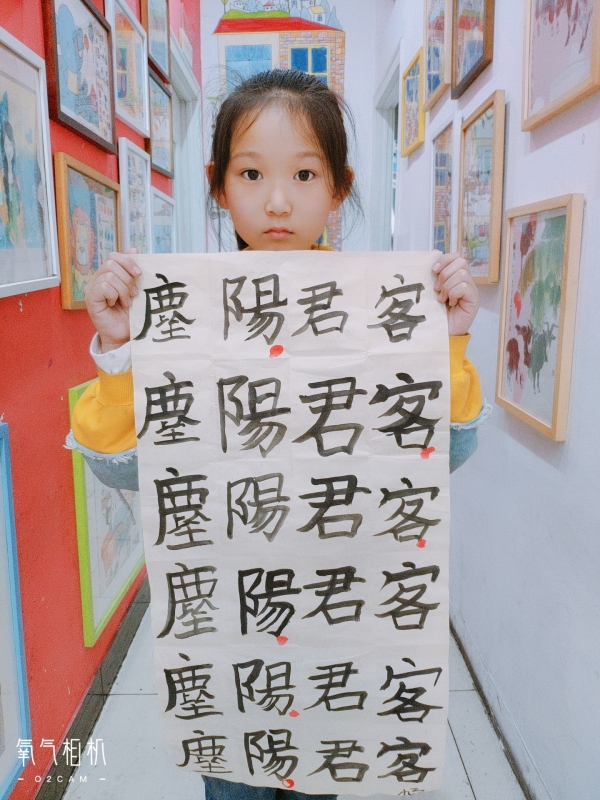 客客客客客客
君君君君君君
陽陽陽陽陽陽
塵塵塵塵塵塵
氧气相机
- O2CAM -